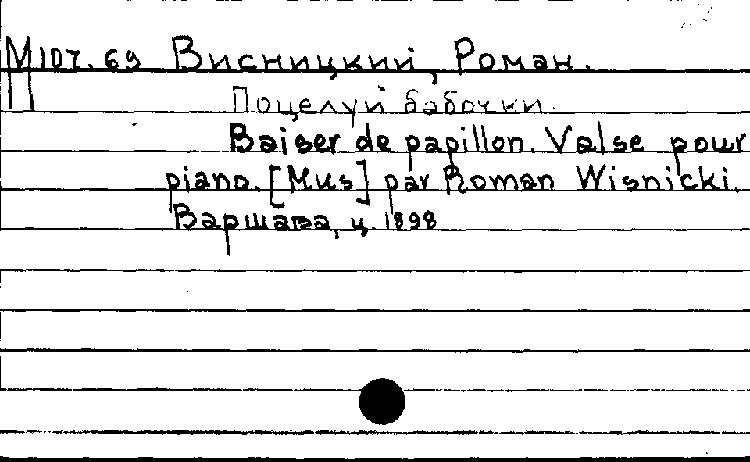 М 107.69 Висницкий, Роман.
П
Поцелуй бабочки.
Baiser de papillon. Valse pour
piano. [Mus] par Roman Wisnicki.
Варшава, ц. 1898